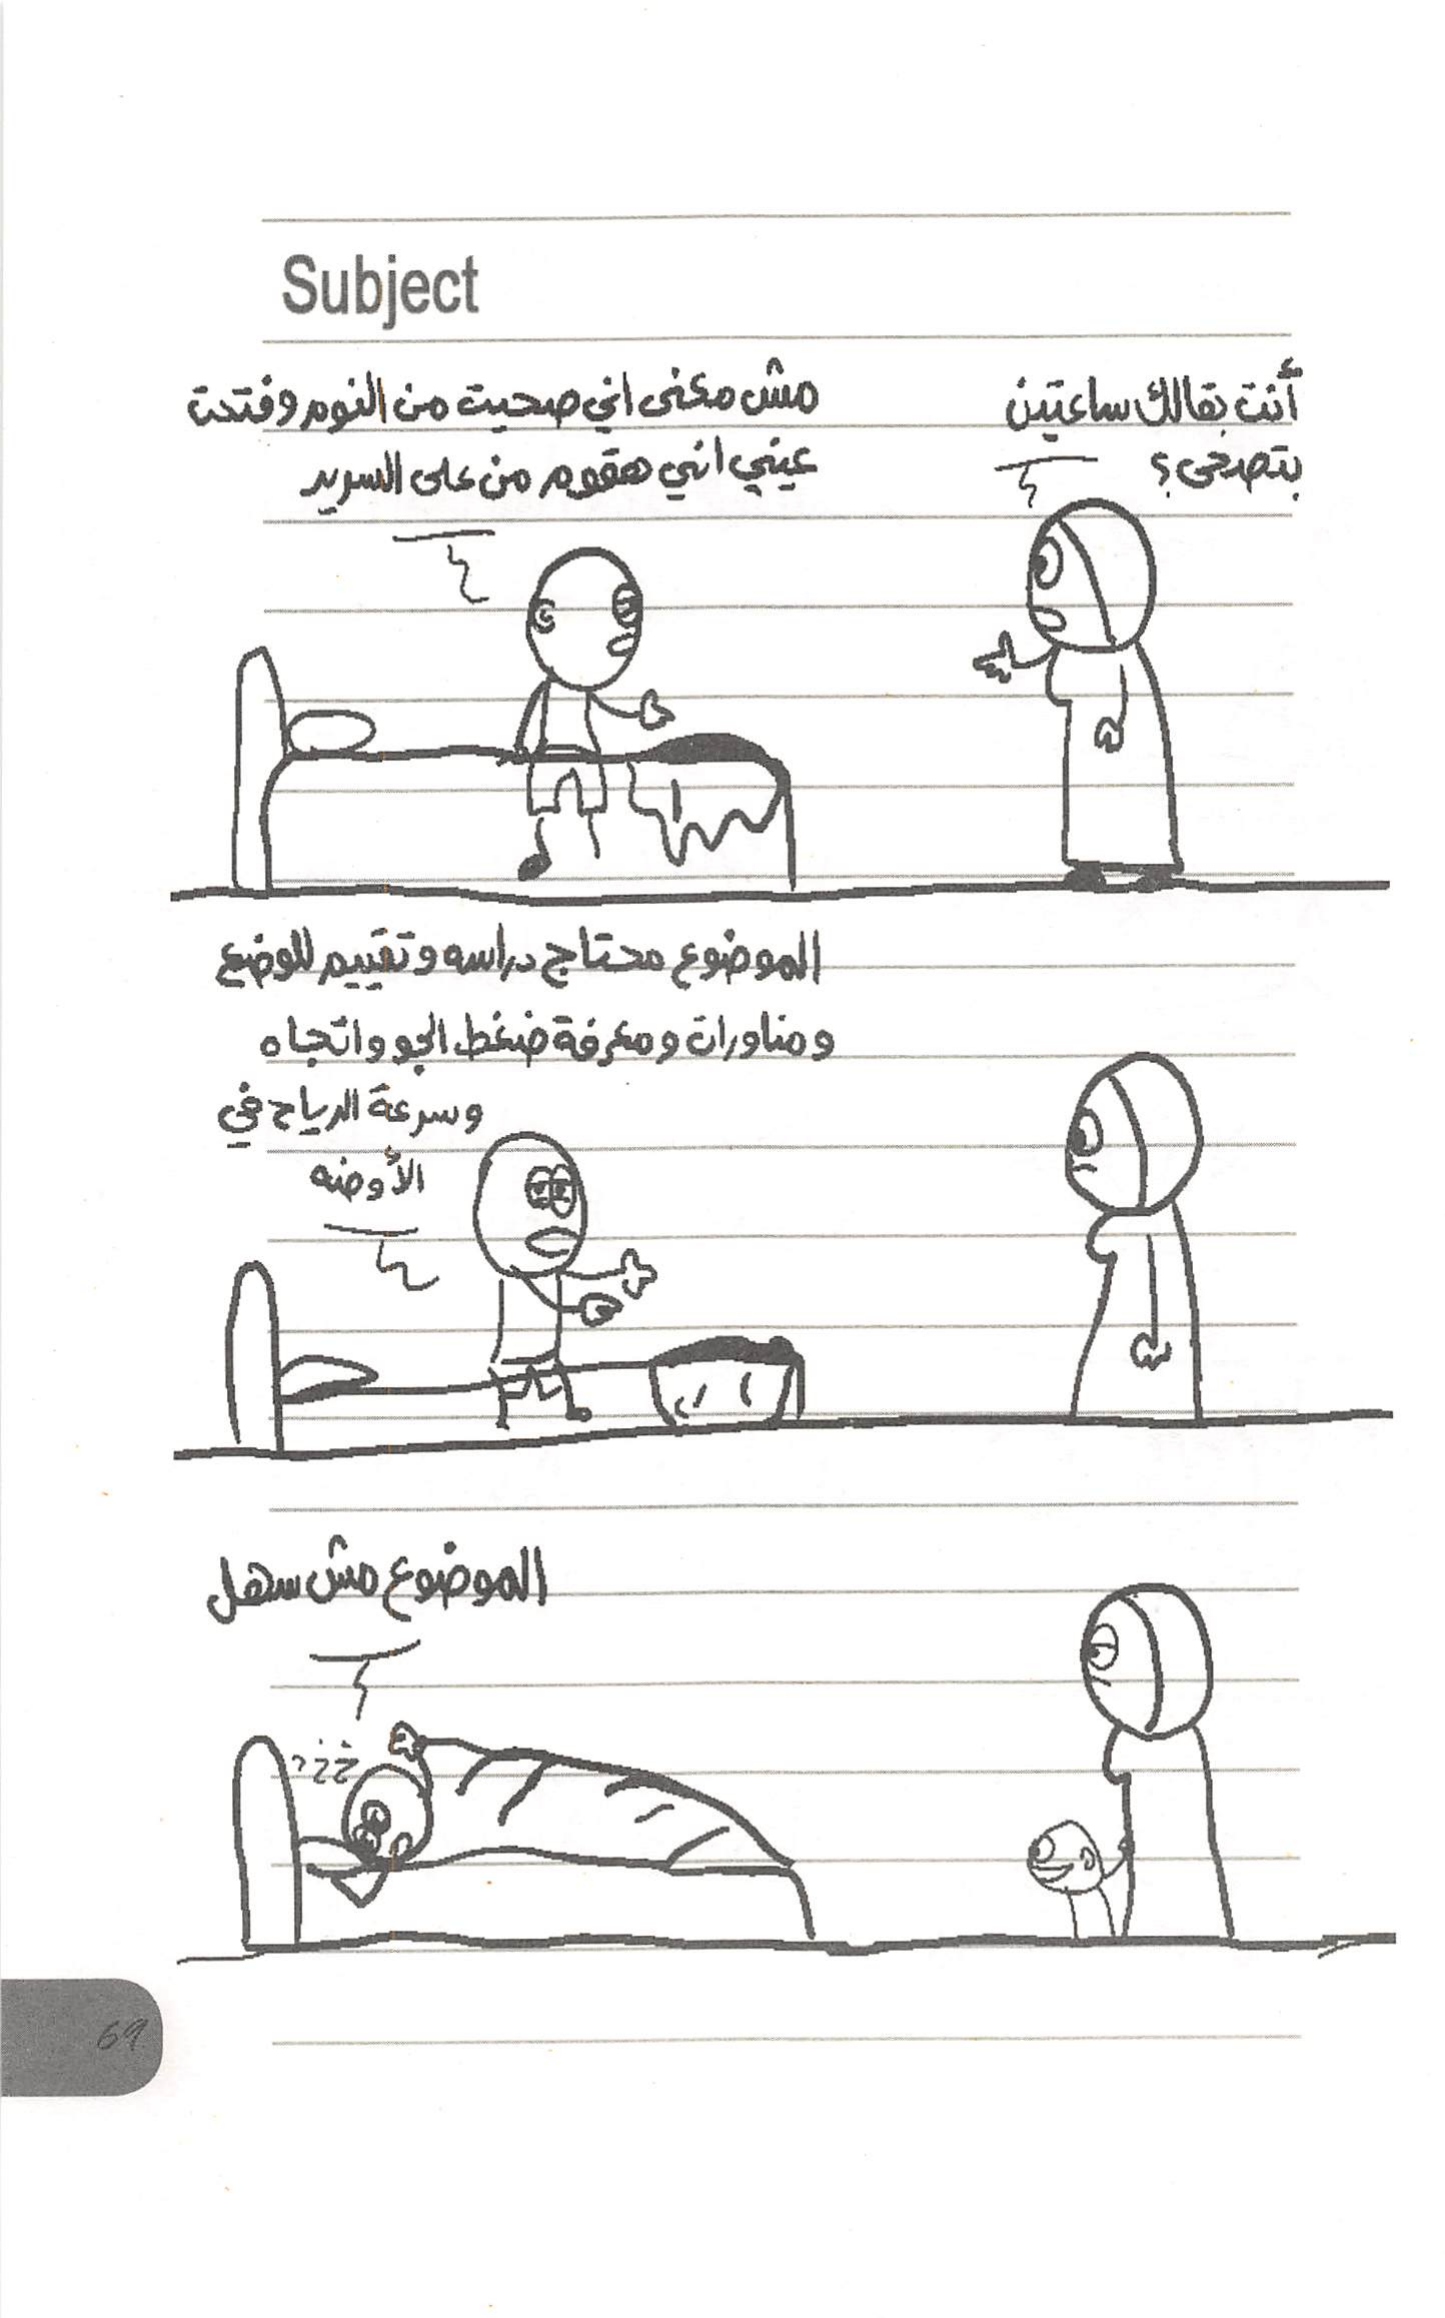 Subject
أنت بقالك ساعتين
بتصحى؟
مش معنى اني صحيت من النوم وفتحت
عيني اني هقوم من على السرير
الموضوع محتاج دراسه وتقييم للوضع
ومناورات ومعرفة ضغط الجو واتجاه
وسرعة الرياح في
الأوضه
الموضوع مش سهل
خخخ
69